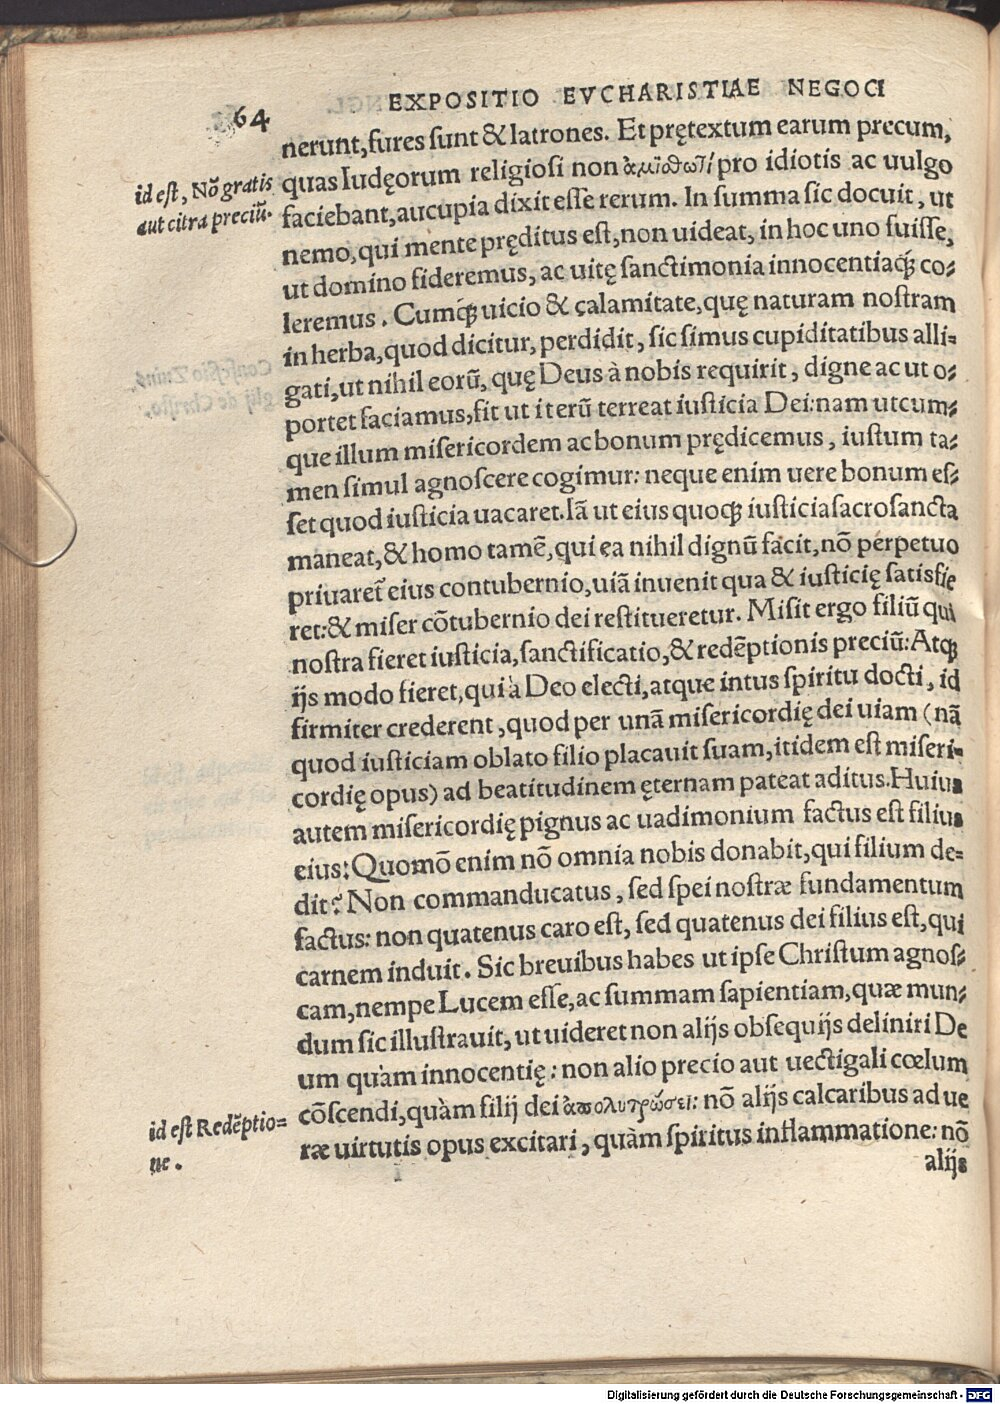 EXPOSITIO EVCHARISTIAE NEGOCI
64
nerunt, fures sunt & latrones. Et prętextum earum precum,
id est, Nō gratis
aut citra preciū.
quas Iudęorum religiosi non ἀμισθωτὶ pro idiotis ac uulgo
faciebant, aucupia dixit esse rerum. In summa sic docuit, ut
nemo, qui mente pręditus est, non uideat, in hoc uno fuisse,
ut domino fideremus, ac uitę sanctimonia innocentiaq́; co⸗
leremus. Cumq́; uicio & calamitate, quę naturam nostram
in herba, quod dicitur, perdidit, sic simus cupiditatibus alli⸗
gati, ut nihil eorū, quę Deus à nobis requirit, digne ac ut o⸗
portet faciamus, fit ut iterū terreat iusticia Dei: nam utcum⸗
que illum misericordem ac bonum prędicemus, iustum ta⸗
men simul agnoscere cogimur: neque enim uere bonum es⸗
set quod iusticia uacaret. Iā ut eius quoq; iusticia sacrosancta
maneat, & homo tamē, qui ea nihil dignū facit, nō perpetuo
priuaret̃ eius contubernio, uiā inuenit qua & iusticię satisfie
ret: & miser cōtubernio dei restitueretur. Misit ergo filiū qui
nostra fieret iusticia, sanctificatio, & redēptionis preciū: Atq;
ijs modo fieret, qui à Deo electi, atque intus spiritu docti, id
firmiter crederent, quod per unā misericordię dei uiam (nā
quod iusticiam oblato filio placauit suam, itidem est miseri⸗
cordię opus) ad beatitudinem ęternam pateat aditus. Huius
autem misericordię pignus ac uadimonium factus est filius
eius: Quomō enim nō omnia nobis donabit, qui filium de⸗
dit? Non commanducatus, sed spei nostræ fundamentum
factus: non quatenus caro est, sed quatenus dei filius est, qui
carnem induit. Sic breuibus habes ut ipse Christum agnos⸗
cam, nempe Lucem esse, ac summam sapientiam, quæ mun⸗
dum sic illustrauit, ut uideret non alijs obsequijs deliniri De
um quàm innocentię: non alio precio aut uectigali cœlum
cōscendi, quàm filij dei ἀπολυτρώσει: nō alijs calcaribus ad ue
id est Redēptio⸗
ne.
ræ uirtutis opus excitari, quàm spiritus inflammatione: nō
alijs
Digitalisierung gefördert durch die Deutsche Forschungsgemeinschaft - DFG